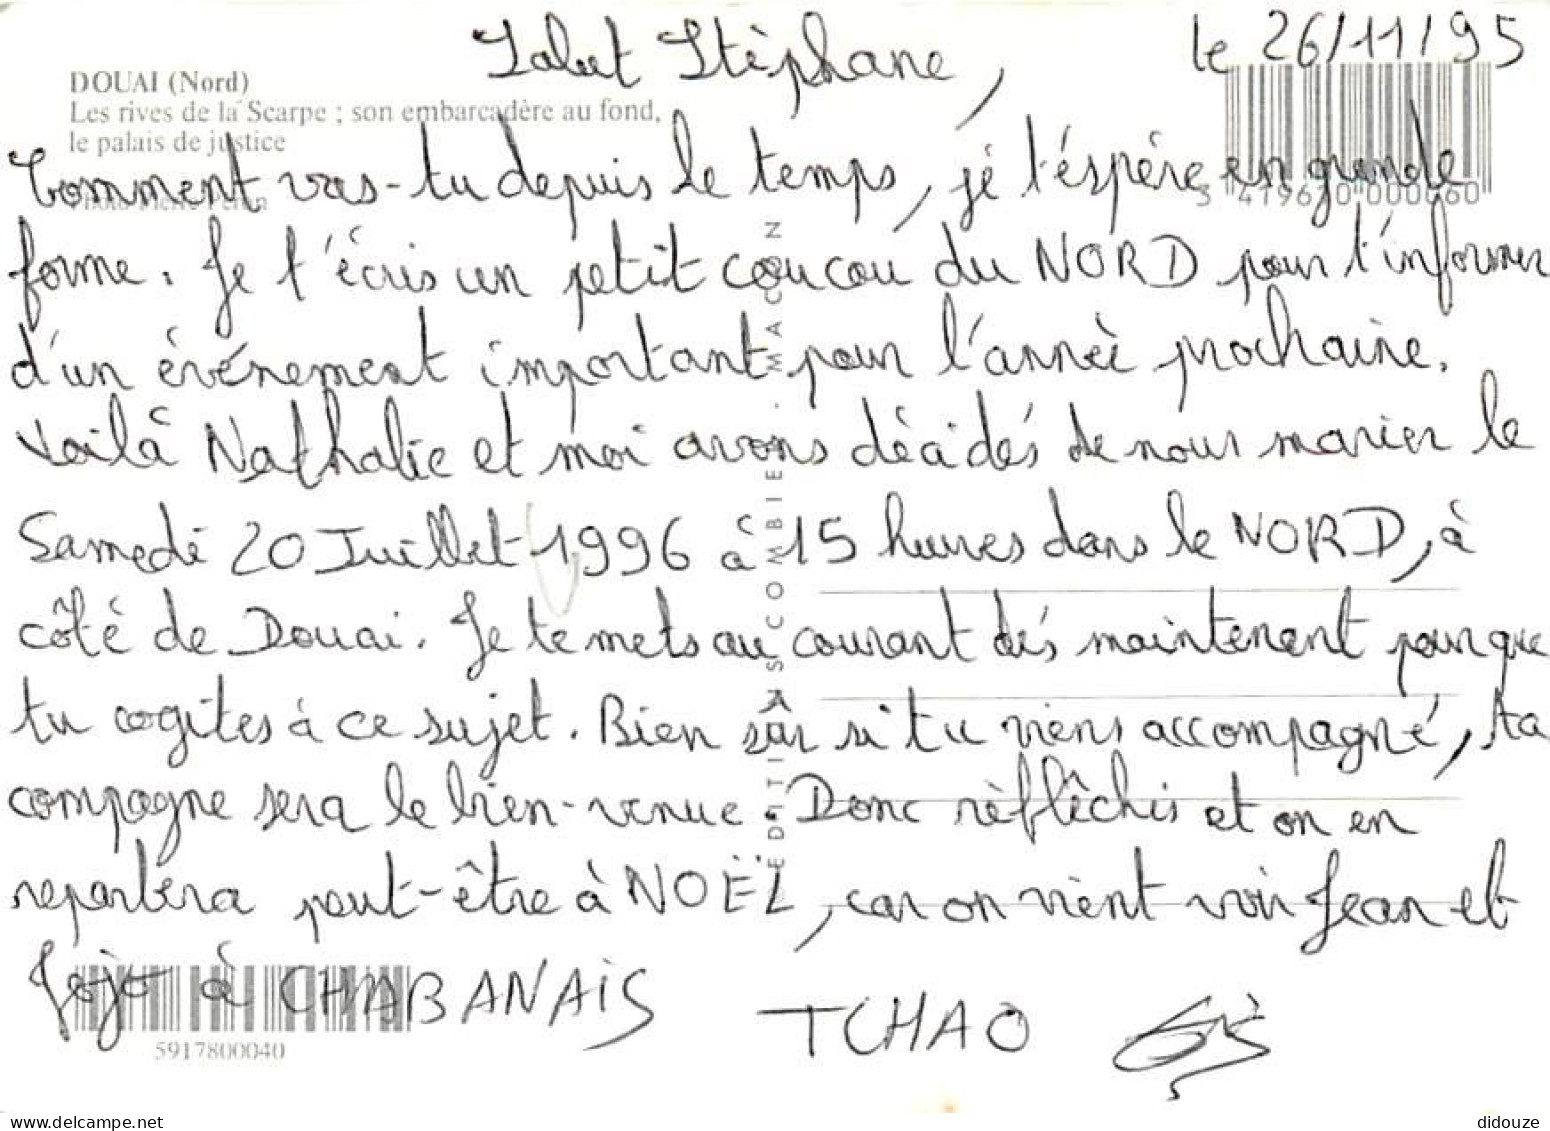 le 26/11/95
Salut Stéphane,
DOUAI (Nord)
Les rives de la Scarpe ; son embarcadère au fond,
le palais de justice
Photo Pierre
3 419620 000060
Comment vas-tu depuis le temps, jé t'éspére en grande
forme. Je t'écris un petit coucou du NORD pour t'informer
d'un événement important pour l'année prochaine.
Voilà Nathalie et moi avons décidés de nous marier le
Samedi 20 Juillet 1996 à 15 heures dans le NORD, à
côté de Douai. Je te mets au courant dés maintenant pour que
tu cogites à ce sujet. Bien sûr si tu viens accompagné, ta
compagne sera le bien-venue. Donc réflêchis et on en
reparlera peut-être à NOËL, car on vient voir Jean et
Jojo à CHABANAIS TCHAO
EDITIONS COMBIER MACON
5917800040
delcampe.net
didouze